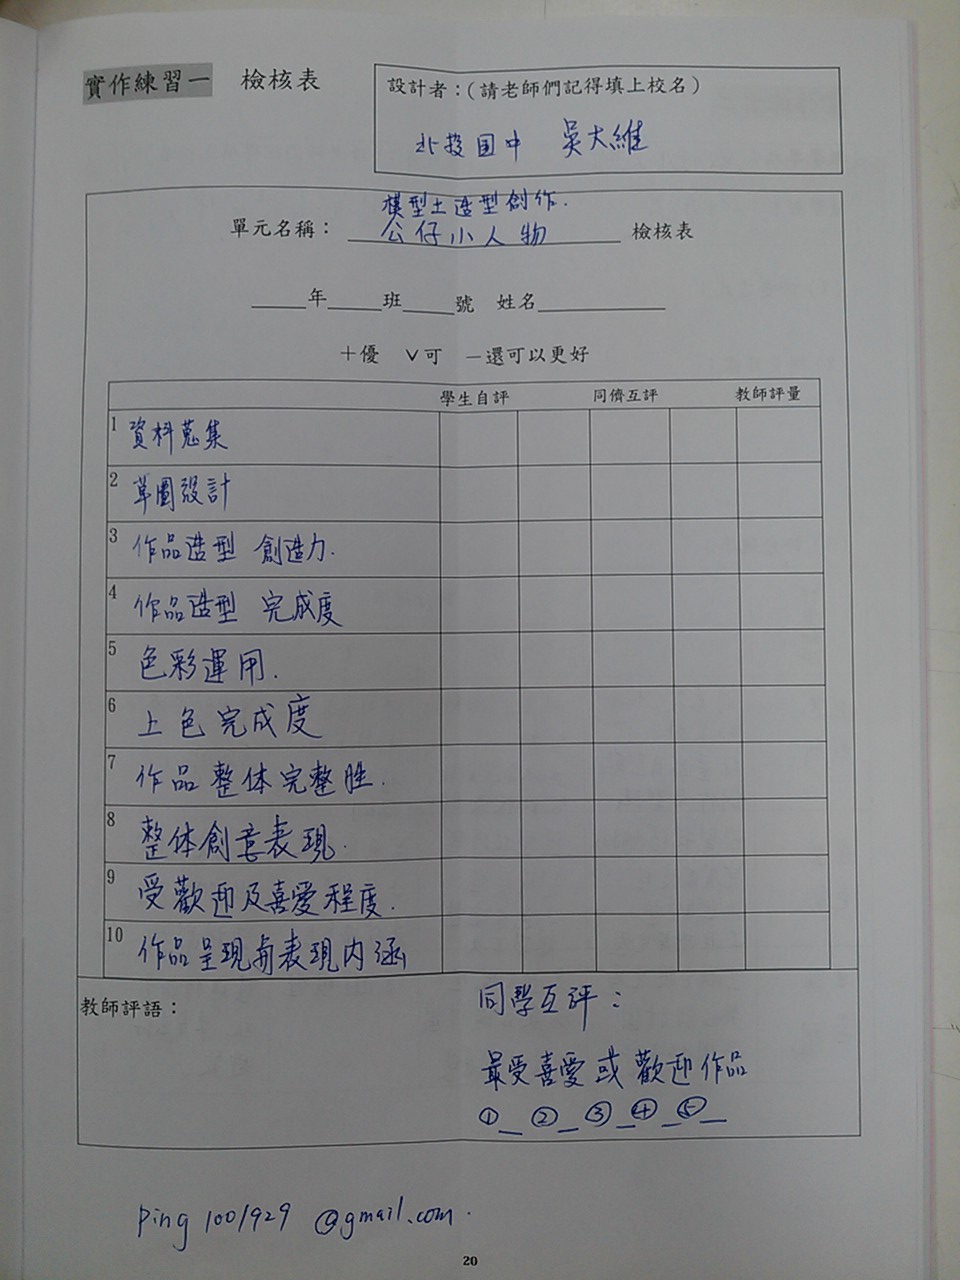 實作練習一 檢核表
設計者：（請老師們記得填上校名）
北投国中 吳大維
模型土造型創作.
單元名稱：公仔小人物 檢核表
____年____班____號 姓名__________
＋優 ∨可 －還可以更好
學生自評 同儕互評 教師評量
1 資料蒐集
2 草圖設計
3 作品造型 創造力.
4 作品造型 完成度
5 色彩運用.
6 上色完成度
7 作品整体完整性.
8 整体創意表現.
9 受歡迎及喜愛程度.
10 作品呈現與表現内涵
教師評語：
同學互評：
最受喜愛或歡迎作品
①_ ②_ ③_ ④_ ⑤_
ping1001929@gmail.com.
20